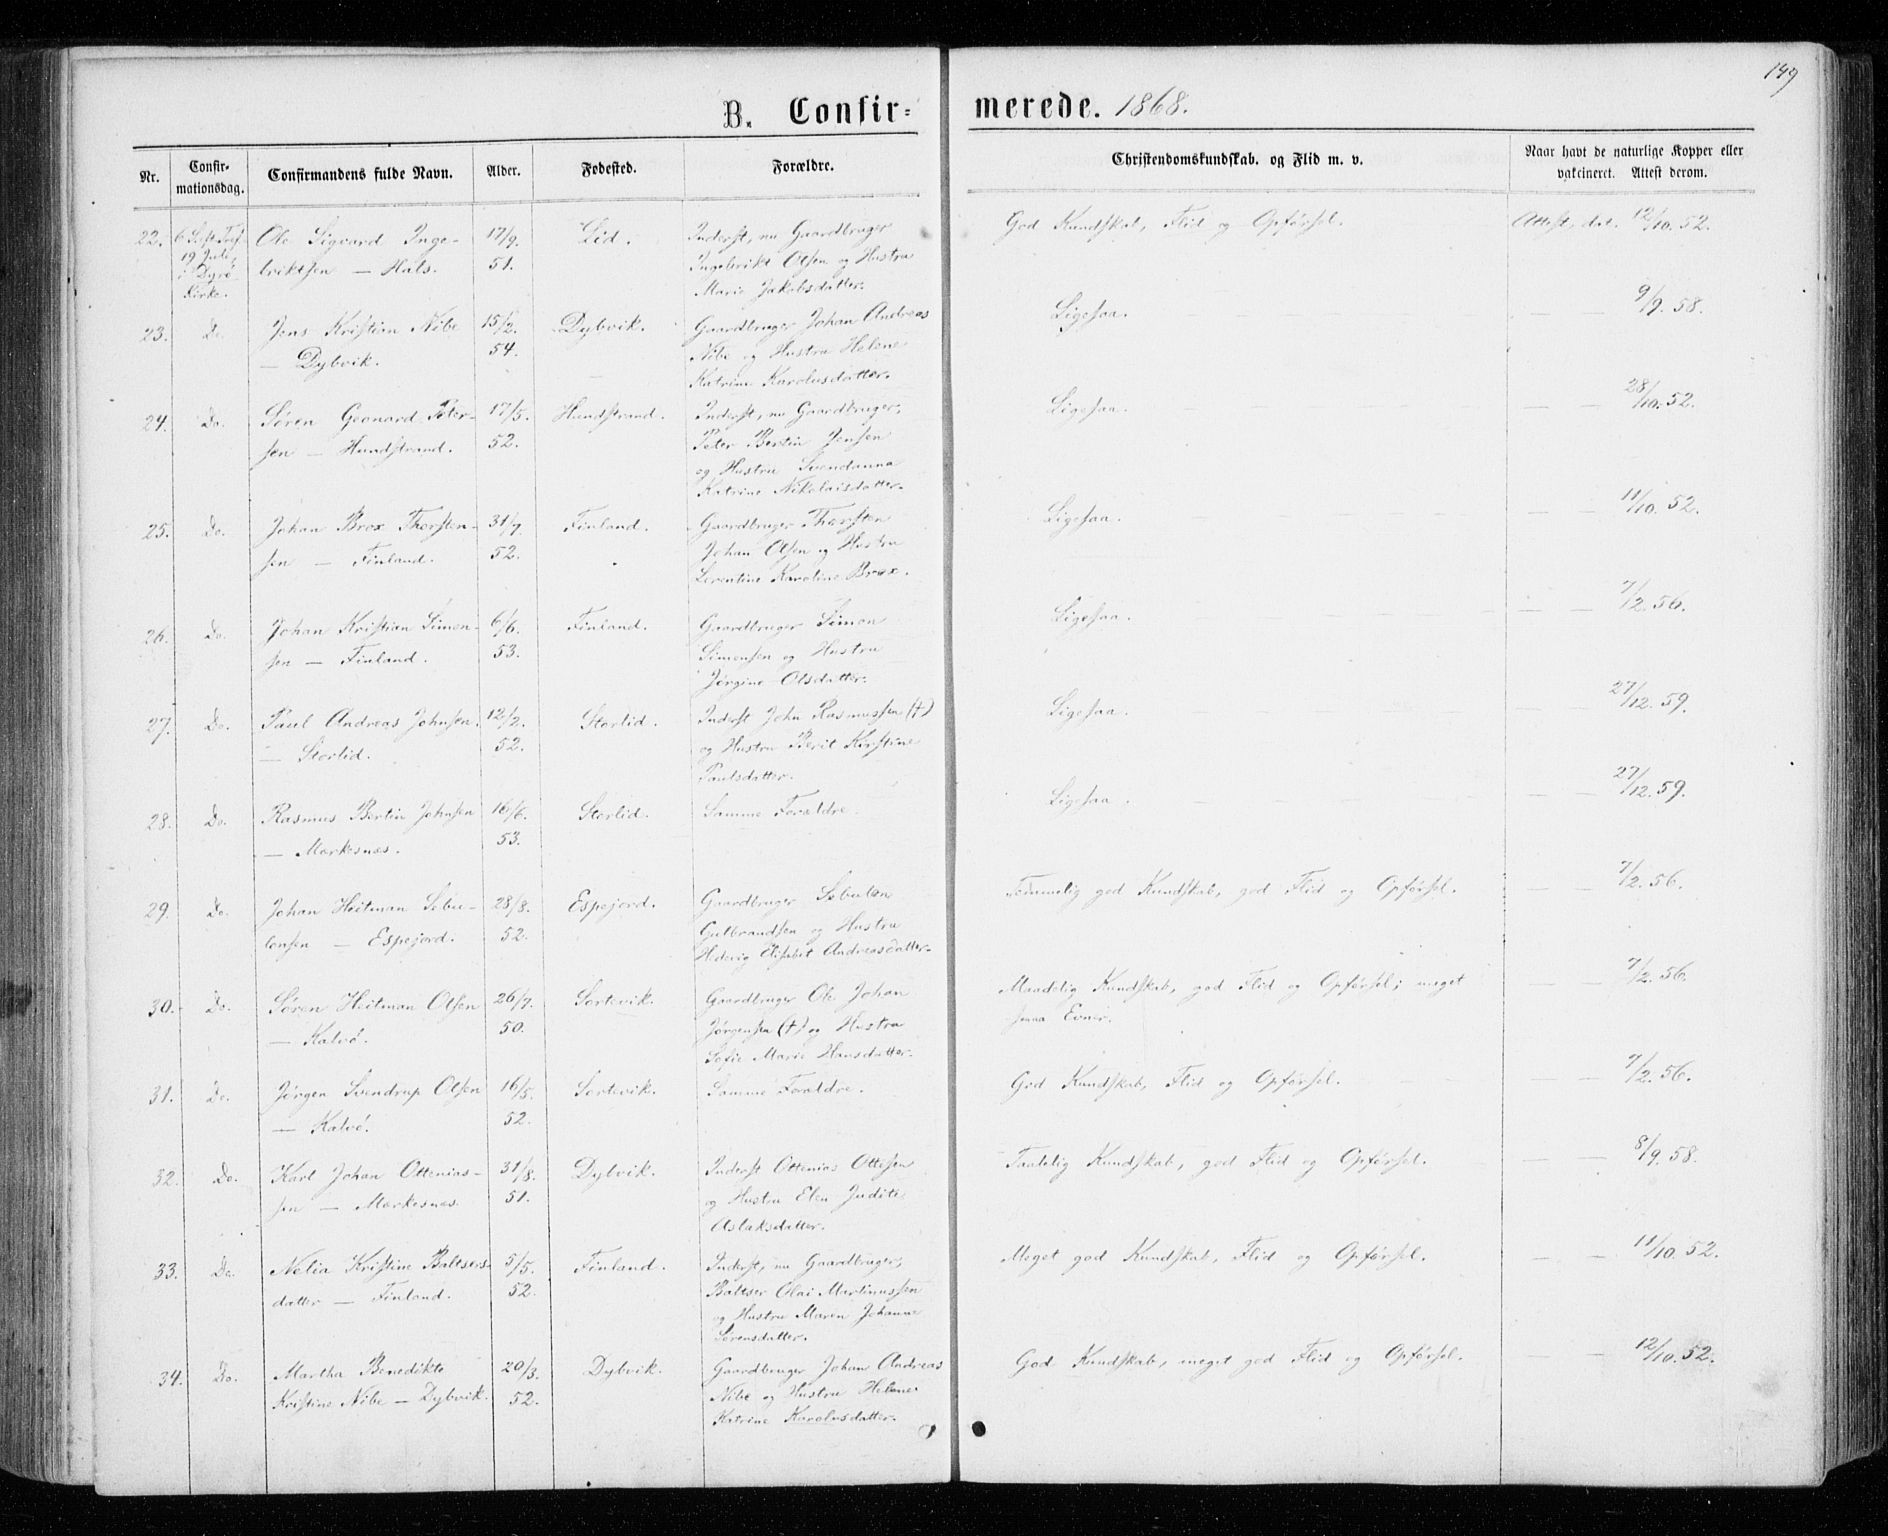 149
B. Confir-
merede. 1868.
Nr.
Confir-
mationsdag.
Confirmandens fulde Navn.
Alder.
Fødested.
Forældre.
Christendomskundskab. og Flid m. v.
Naar havt de naturlige Kopper eller
vakcineret. Attest derom.
22. Ole Sigvard Inge- 17/9. Lid. Inderst, nu Gaardbruger God Kundskab, Flid og Opførsel. Attest, dat. 12/10. 52.
19 Juli, briktsen — Hals. 51. Ingebrikt Olsen og Hustru
i Dyrø Marie Jakobsdatter.
Kirke.
23. Do. Jens Kristian Nibe 15/2. Dybvik. Gaardbruger Johan Andreas Ligesaa. 9/9. 58.
— Dybvik. 54. Nibe og Hustru Helene
Katrine Karolusdatter.
24. Do. Søren Geonard Peter- 17/5. Hundstrand. Inderst, nu Gaardbruger, Ligesaa. — — 28/10. 52.
sen — Hundstrand. 52. Peter Bertin Jensen
og Hustru Svendanna
Katrine Nikolaisdatter.
25. Do. Johan Brox Thorsten- 31/7. Finland. Gaardbruger Thorsten Ligesaa. 11/10. 52.
sen — Finland. 52. Johan Olsen og Hustru
Lerentine Karoline Brox.
26. Do. Johan Kristian Simon- 6/6. Finland. Gaardbruger Simon Ligesaa. — — 7/2. 56.
sen — Finland. 53. Simonsen og Hustru
Jørgine Olsdatter.
27. Do. Paul Andreas Johnsen. 12/2. Storlid. Inderst John Rasmussen (†) Ligesaa. — — 27/12. 59.
— Storlid. 52. og Hustru Berit Kirstine
Paulsdatter.
28. Do. Rasmus Bertin Johnsen 16/6. Storlid. Samme Forældre. Ligesaa. — — 27/12. 59.
— Markesnæs. 53.
29. Do. Johan Heitman Sebu- 28/8. Espejord. Gaardbruger Sebulon Temmelig god Kundskab, god Flid og Opførsel. — — 7/2. 56.
lonsen — Espejord. 52. Gulbrandsen og Hustru
Hedevig Elisabet Andreasdatter.
30. Do. Søren Heitman Olsen 26/7. Sortevik. Gaardbruger Ole Johan Maadelig Kundskab, god Flid og Opførsel; meget — — 7/2. 56.
— Kalvø. 50. Jørgensen (†) og Hustru smaa Evner.
Sofie Marie Hansdatter.
31. Do. Jørgen Svendrup Olsen 16/5. Sortevik. Samme Forældre. God Kundskab, Flid og Opførsel. — — 7/2. 56.
— Kalvø. 52.
32. Do. Karl Johan Ottenias- 31/8. Dybvik. Inderst Ottenias Ottesen Taalelig Kundskab, god Flid og Opførsel. — — 8/9. 58.
sen — Markesnæs. 51. og Hustru Elen Judite
Aslaksdatter.
33. Do. Nelia Kristine Baltsers- 5/5. Finland. Inderst, nu Gaardbruger, Meget god Kundskab, Flid og Opførsel. — — 11/10. 52.
datter — Finland. 52. Baltser Olai Martinussen
og Hustru Maren Johanne
Sørensdatter.
34. Do. Martha Benedikte 20/3. Dybvik. Gaardbruger Johan Andreas God Kundskab, meget god Flid og Opførsel. — — 12/10. 52.
Kristine Nibe — Dybvik. 52. Nibe og Hustru Helene
Katrine Karolusdatter.